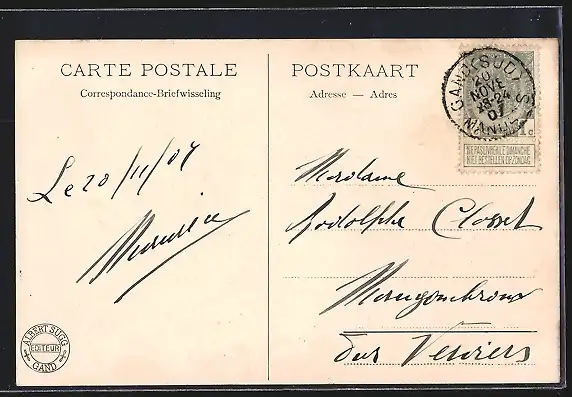 CARTE POSTALE
Correspondance-Briefwisseling
POSTKAART
Adresse — Adres
GAND (SUD)
20
NOVE
23-24
07
1c
NE PAS LIVRER LE DIMANCHE
NIET BESTELLEN OP ZONDAG
Le 20/11/07
Madame
Rodolphe Closset
Verviers
ALBERT SUGG
EDITEUR
GAND